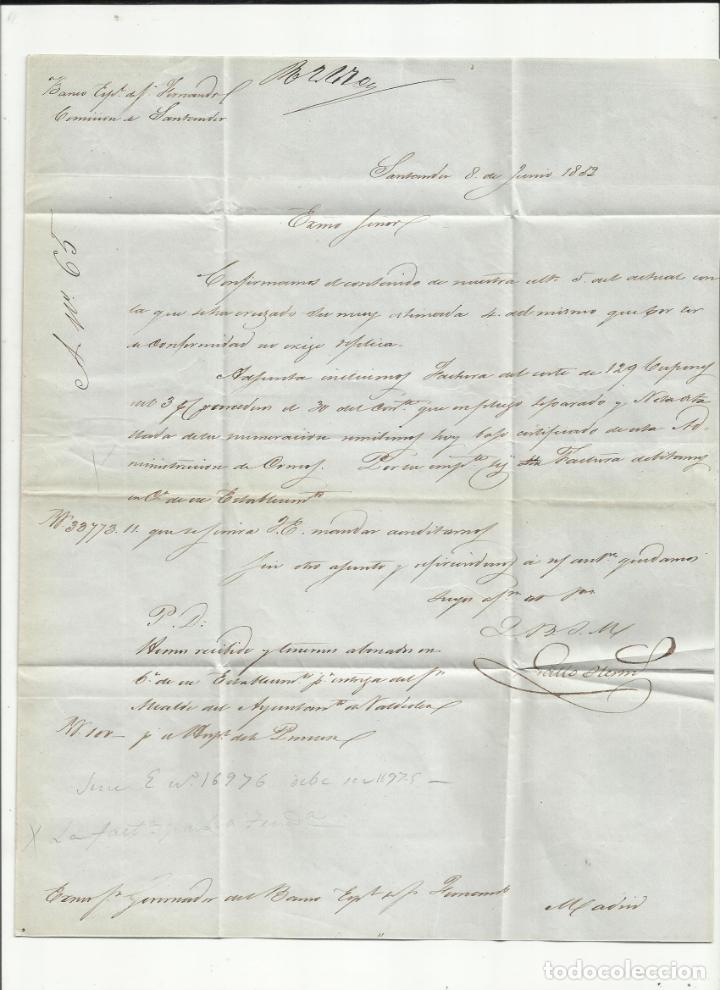 Banco Espl. de Sn. Fernando
Comision de Santander
Santander 8. de Junio 1853
Exmo Señor
A. No. 65
Confirmamos el contenido de nuestra ult. 5. del actual con
la que se ha cruzado su muy estimada 4. del mismo que por ser
de conformidad no exige replica.
Adjunta incluimos Factura del corte de 129 Cupones
del 3 p% vencedero el 30 del Corte. que en pliego separado y Nota deta
llada de su numeracion remitimos hoy bajo certificado de esta Ad-
ministracion de Correos. Por su impte. Factura debitamos
en Cta. de ese Establecimto.
33773.11. que se servirá V.E. mandar acreditarnos
Sin otro asunto y refiriendonos á ntra antre. quedamos
Q B S M
P. D:
Hemos recibido y tenemos abonados en
Cta. de ese Establecimto. pr. entrega del Sr.
Alcalde del Ayuntamto. de Valdeolea
100 –
Serie E no. 16976 debe ser 11975 –
X La factª
Exmo Sr. Governador del Banco Espl. de Sn. Fernando
Madrid
todocoleccion